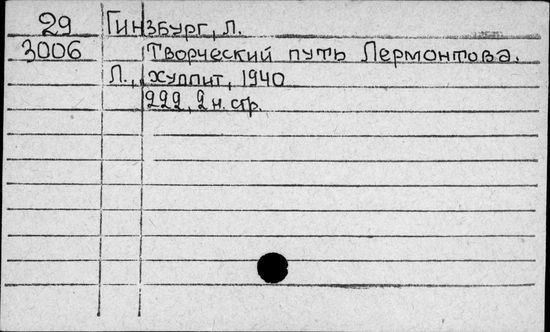 29 Гинзбург, Л.
3006 Творческий путь Лермонтова.
Л., Худлит, 1940
222, 2 н. стр.